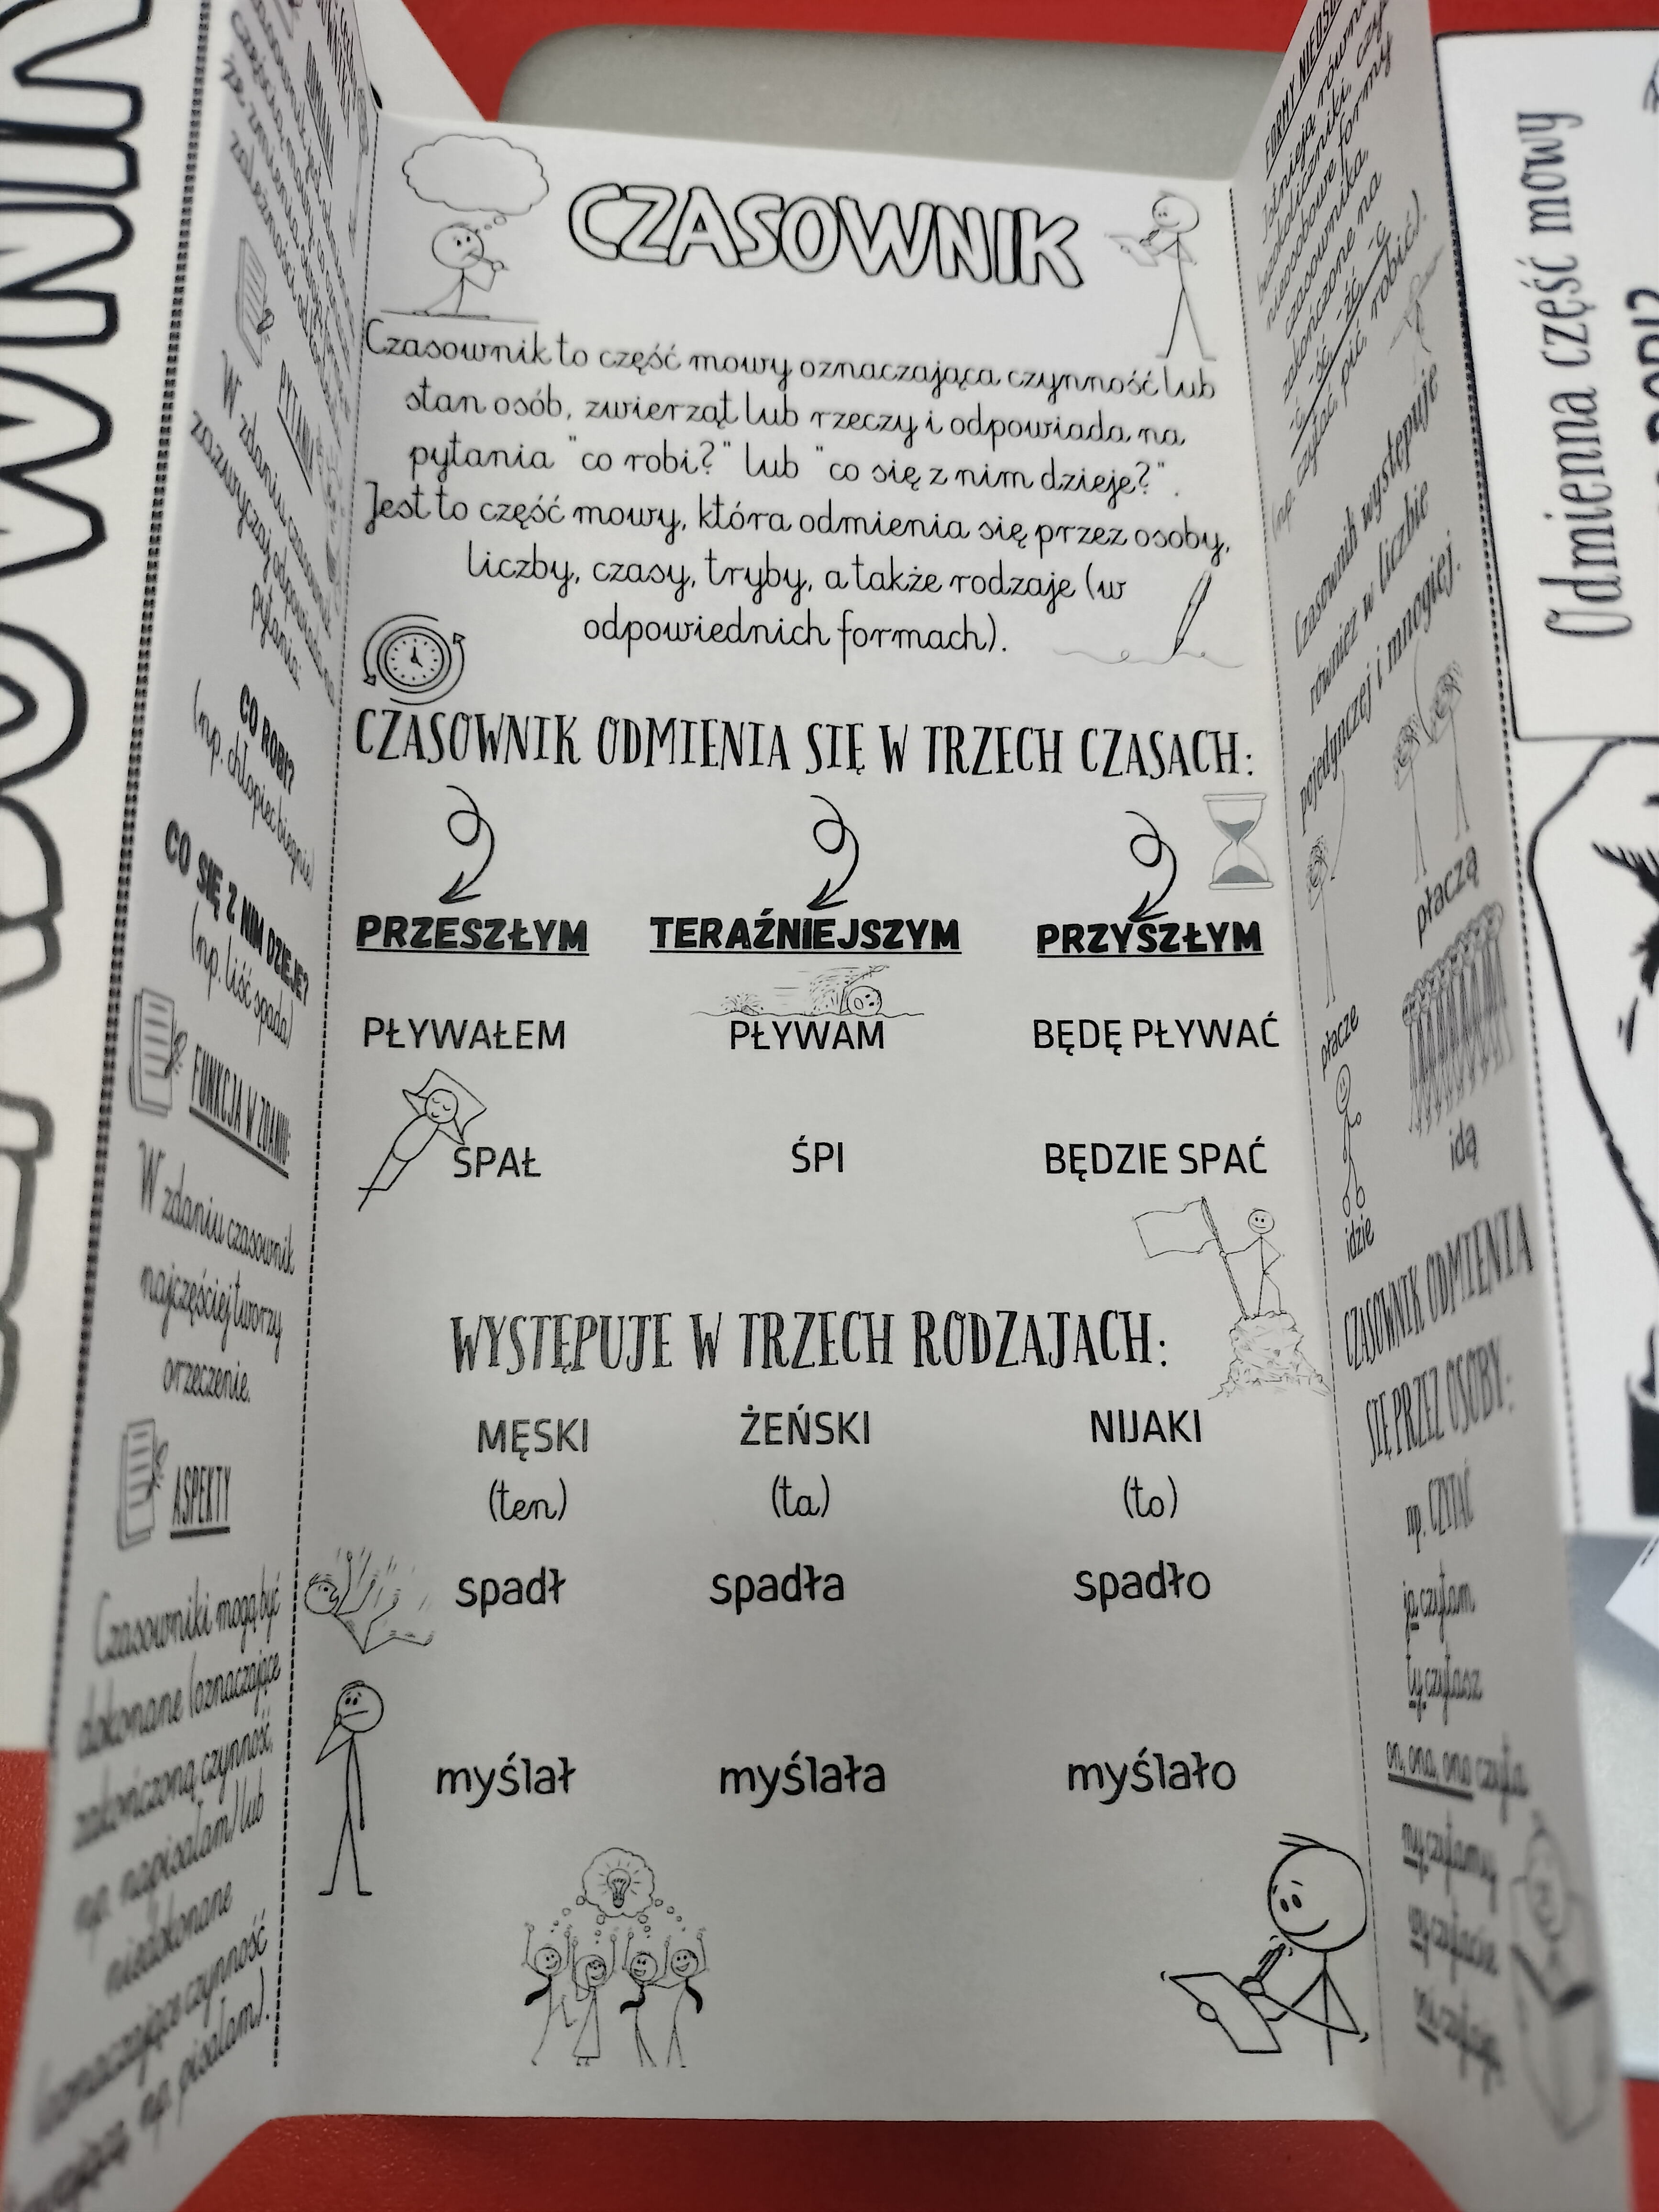 CZASOWNIK
Czasownik to część mowy oznaczająca czynność lub
stan osób, zwierząt lub rzeczy i odpowiada na
pytania "co robi?" lub "co się z nim dzieje?".
Jest to część mowy, która odmienia się przez osoby,
liczby, czasy, tryby, a także rodzaje (w
odpowiednich formach).
CZASOWNIK ODMIENIA SIĘ W TRZECH CZASACH:
PRZESZŁYM TERAŹNIEJSZYM PRZYSZŁYM
PŁYWAŁEM PŁYWAM BĘDĘ PŁYWAĆ
SPAŁ ŚPI BĘDZIE SPAĆ
WYSTĘPUJE W TRZECH RODZAJACH:
MĘSKI ŻEŃSKI NIJAKI
(ten) (ta) (to)
spadł spadła spadło
myślał myślała myślało
PYTANIA
W zdaniu czasownik
zazwyczaj odpowiada na
pytania:
CO ROBI?
(np. chłopiec biegnie)
CO SIĘ Z NIM DZIEJE?
(np. liść spada)
FUNKCJA W ZDANIU:
W zdaniu czasownik
najczęściej tworzy
orzeczenie.
ASPEKTY
Czasowniki mogą być
dokonane (oznaczające
zakończoną czynność,
np. napisałam) lub
niedokonane
(oznaczające czynność
np. pisałam).
Istnieją równi
bezokoliczniki, czyl
nieosobowe formy
czasownika
zakończone na
-ć -ść -źć -c
(np. czytać, pić, robić).
Czasownik występuje
również w liczbie
pojedynczej i mnogiej.
płacze płaczą
idzie idą
CZASOWNIK ODMIENIA
SIĘ PRZEZ OSOBY:
np. CZYTAĆ
ja czytam
ty czytasz
on, ona, ono czyta
my czytamy
wy czytacie
Odmienna część mowy